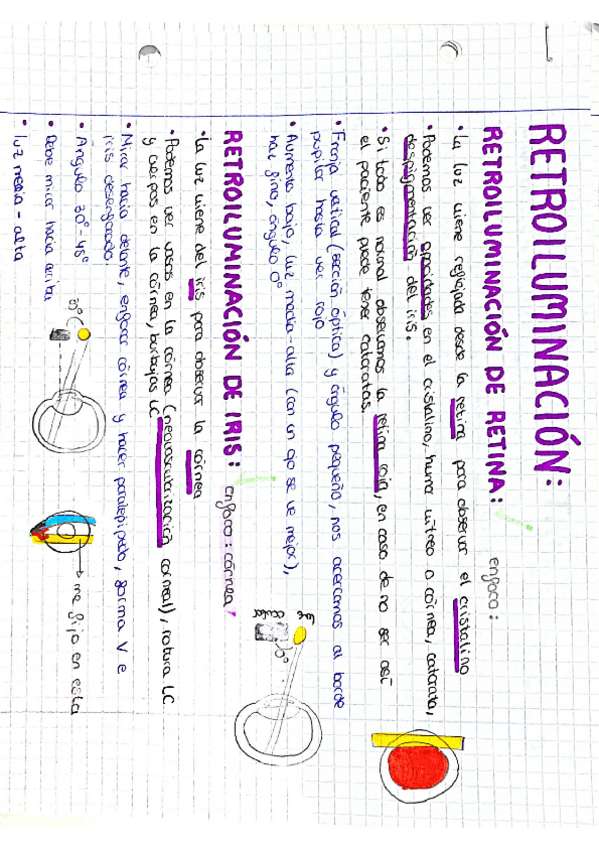 RETROILUMINACIÓN:
RETROILUMINACIÓN DE RETINA: enfoco:
• La luz viene reflejada desde la retina para observar el cristalino
• Podemos ver opacidades en el cristalino, humor vítreo o córnea, catarata,
despigmentación del iris.
• Si todo es normal observamos la retina roja, en caso de no ser así
el paciente puede tener cataratas.
• Franja vertical (sección óptica) y ángulo pequeño, nos acercamos al borde
pupilar hasta ver rojo
• Aumento bajo, luz media-alta (con un ojo se ve mejor),
haz fino, ángulo 0°
luz
ocular
0°
RETROILUMINACIÓN DE IRIS: enfoco: córnea
• La luz viene del iris para observar la córnea
• Podemos ver vasos en la córnea (neovascularización corneal), rotura LC
y cuerpos en la córnea, burbujas LC
• Mirar hacia delante, enfocar córnea y hacer paralepípedo, forma V e
iris desenfocado.
• Ángulo 30°-45°
• Debe mirar hacia arriba
• luz media - alta
30°
me fijo en esta